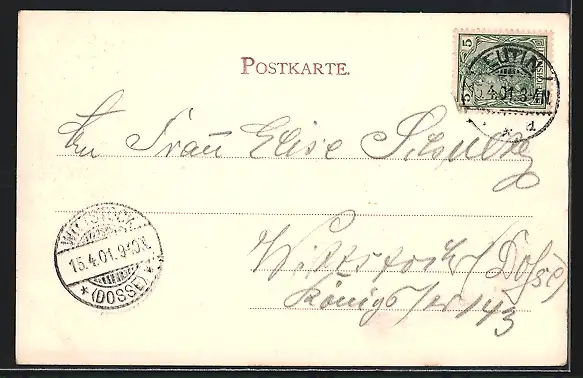 POSTKARTE.
5
EUTIN
15.4.01.3-4N.
An Frau Elise Schultz
WITTSTOCK
15.4.01.9-10N.
* (DOSSE) *
Wittstock (Dosse)
Königstr 143